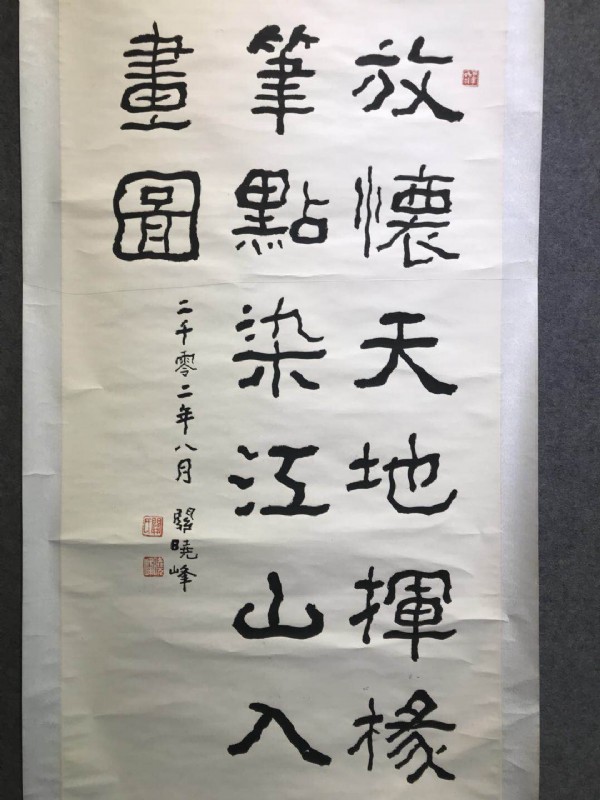 放懷天地揮椽
筆點染江山入
畫圖
二千零二年八月 關曉峰